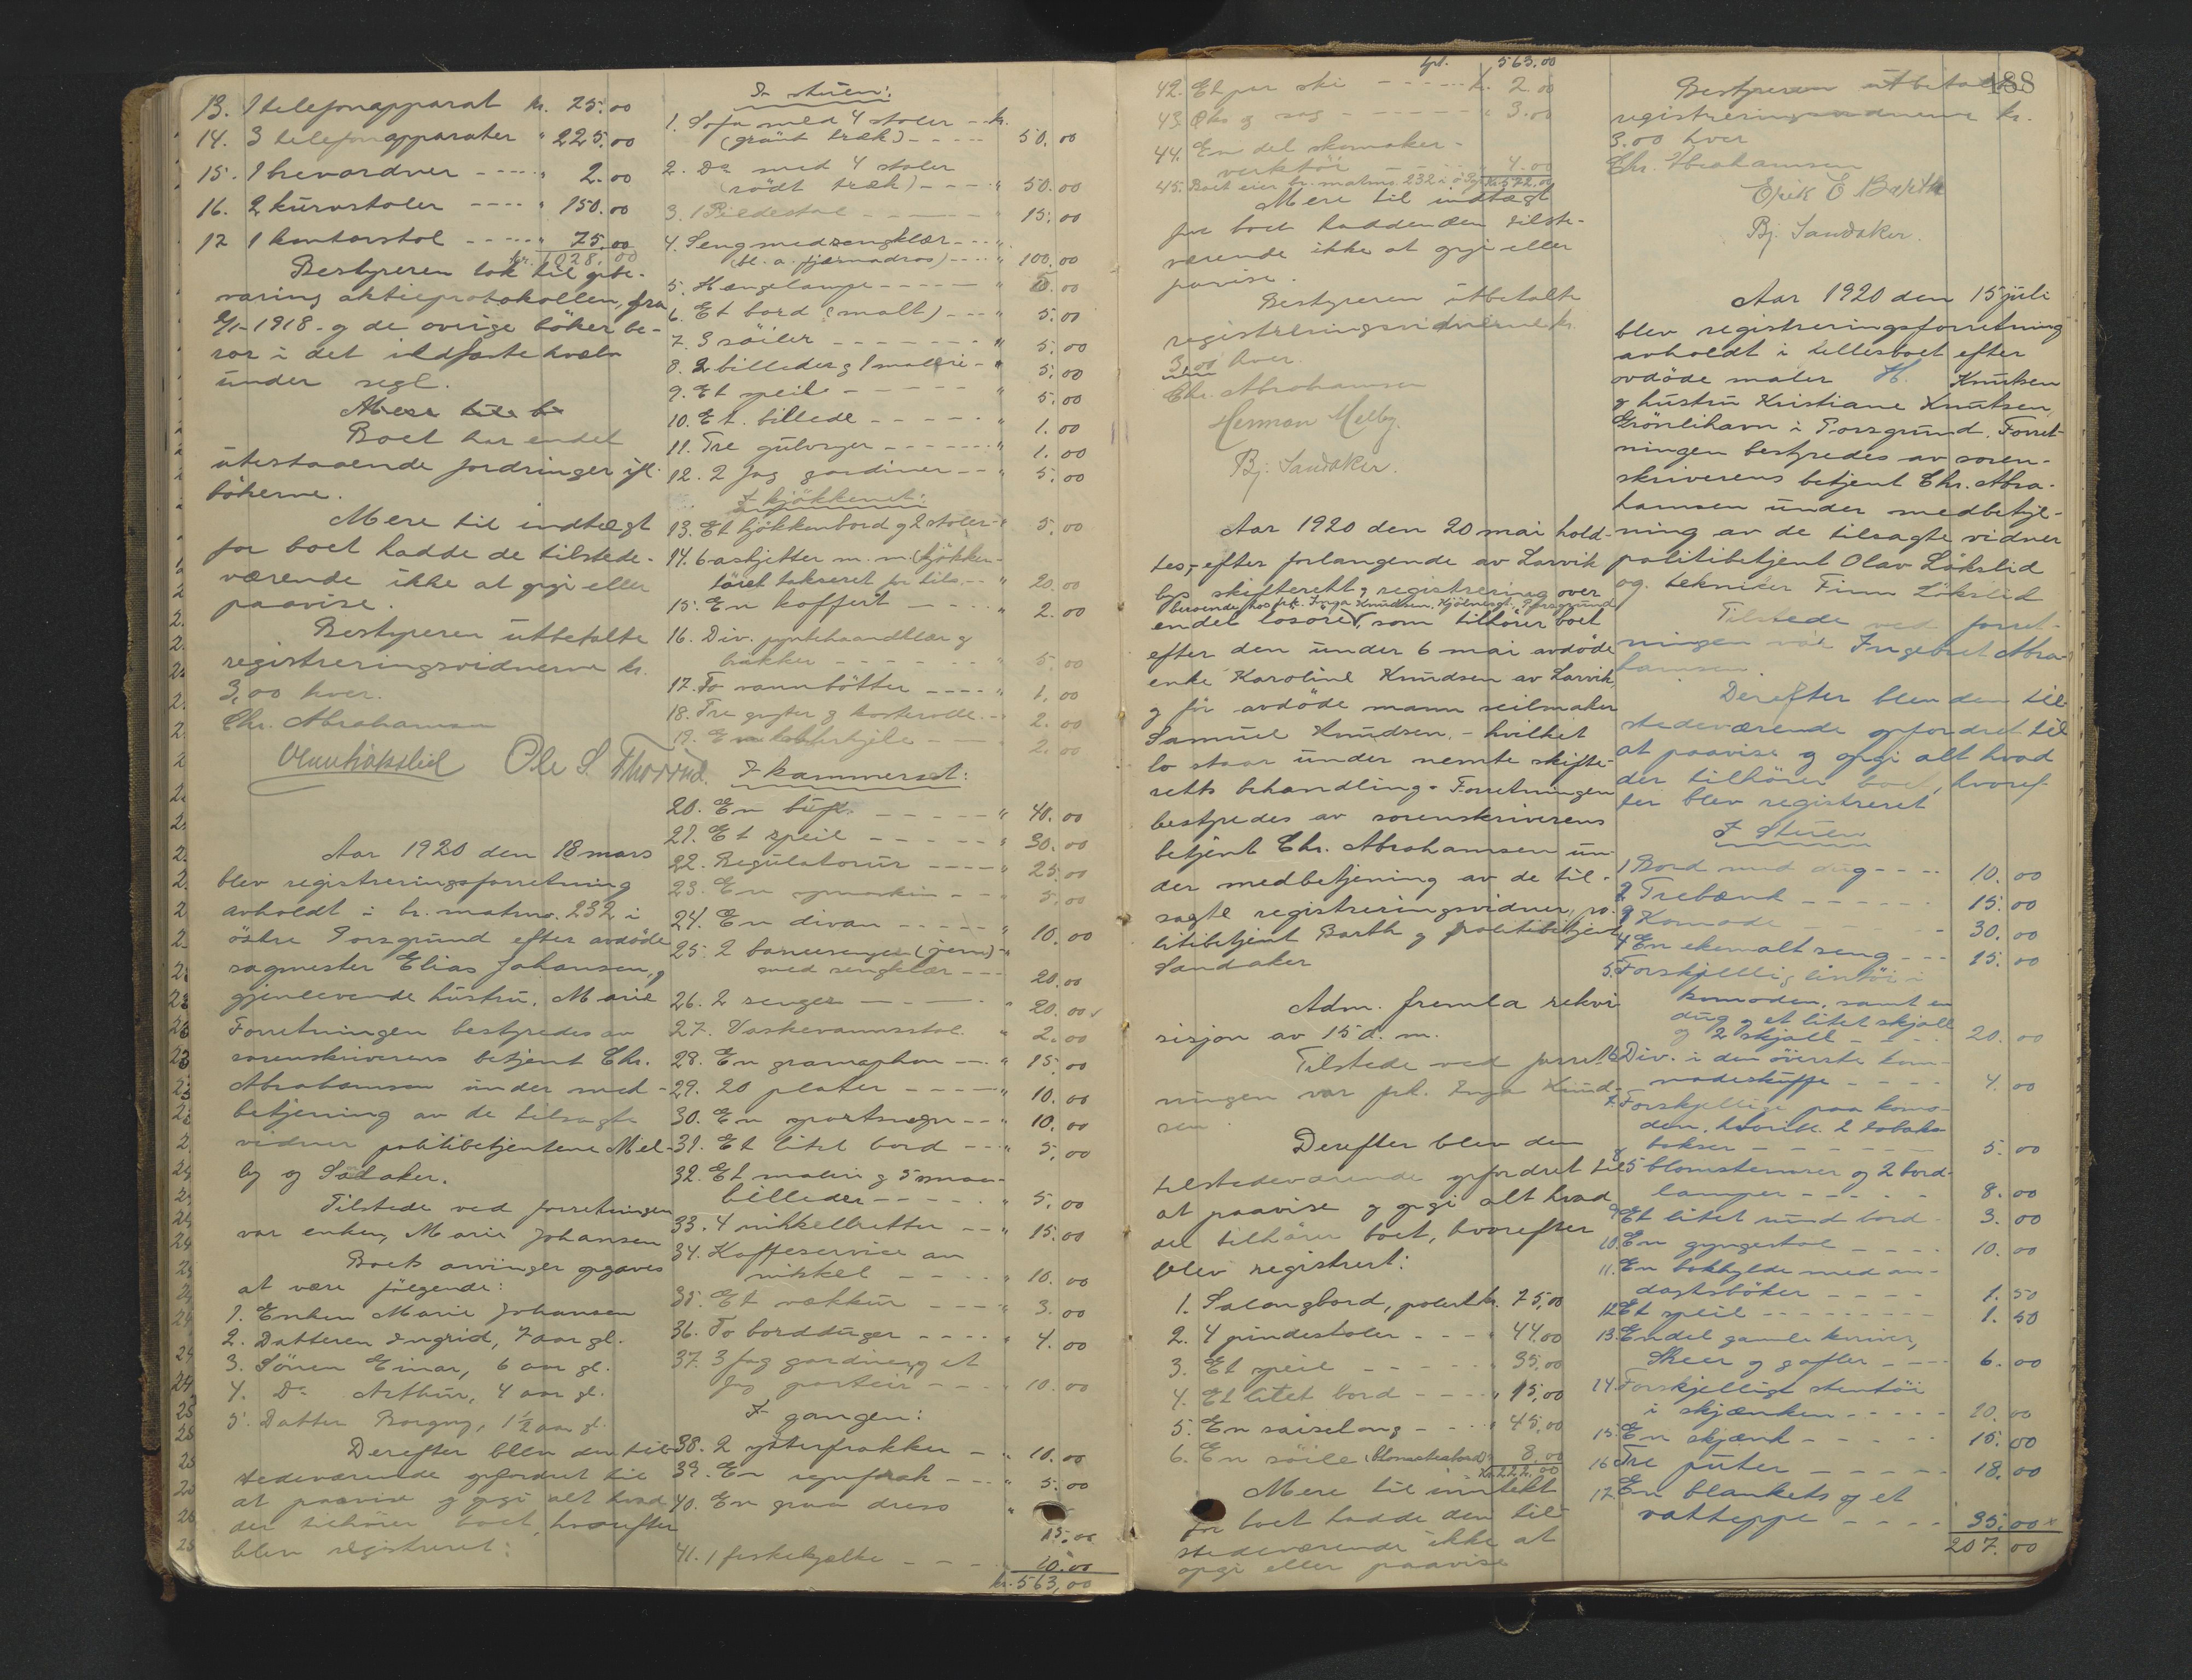 13. 1 telefonapparat kr. 25.00
14. 3 telefonapparater " 225.00
15. 1 brevordner - - - - " 2.00
16. 2 kurvstoler - - - - " 150.00
17 1 kontorstol - - - - " 75.00
kr. 1028.00
Bestyreren tok til opbe-
varing aktieprotokollen, fra
1918 - og de øvrige böker be-
ror i det ildfaste hvelv
under segl.
Boet har endel
utestaaende fordringer ifl.
bökerne.
Mere til indtægt
for boet hadde de tilstede-
værende ikke at opgi eller
paavise.
Bestyreren utbetalte
registreringsvidnerne kr.
3,00 hver.
Chr. Abrahamsen
Olav Løkslid Ole S. Thorsrud.
Aar 1920 den 18 mars
blev registreringsforretning
avholdt i br. matrno. 232 i
östre Porsgrund efter avdöde
sagmester Elias Johansen, og
gjenlevende hustru, Marie
Forretningen bestyredes av
sorenskriverens betjent Chr.
Abrahamsen under med-
betjening av de tilsagte
vidner politibetjentene Mel-
by og Sandaker.
Tilstede ved forretningen
var enken, Marie Johansen
Boets arvinger opgaves
at være følgende:
1. Enken Marie Johansen
2. Datteren Ingrid, 7 aar gl.
3. Sönnen Einar, 6 aar gl.
4. Do Arthur, 4 aar gl.
5. Datter Borgny, 1 1/2 aar gl.
Derefter blev den til-
stedeværende opfordret til
at paavise og opgi alt hvad
der tilhörer boet, hvorefter
blev registreret:
I stuen:
1. Sofa med 4 stoler - - kr.
(grönt træk) - - - - 50.00
2. Do med 4 stoler
(rödt træk) - - - - " 50.00
3. 1 Piedestal - - - - - " 15.00
4. Seng med sengklær - - - "
(bl. a. fjærmadras) - - - - " 100.00
5. Hængelampe - - - - - " 5.00
6. Et bord (malt) - - - " 5.00
7. 3 söiler - - - - - - - " 5.00
8. 2 billeder og 1 maleri - " 5.00
9. Et speil - - - - - - " 5.00
10. Et billede - - - - - " 1.00
11. Tre gulvryer - - - - - " 1.00
12. 2 fag gardiner - - - " 5.00
I kjökkenet:
13. Et kjökkenbord og 2 stoler - " 5.00
14. 6 asjetter m. m. (kjökken-
töiet takseret for tils. - - " 20.00
15. En koffert - - - - - " 2.00
16. Div. pyntehaandklær og
brikker - - - - - - - " 5.00
17. To vannbötter - - - - " 1.00
18. Tre gryter og kasteroller - - " 2.00
19. En - - - " 2.00
I kammerset:
20. En buffet - - - - - - " 40.00
21. Et speil - - - - - - " 30.00
22. Regulatorur - - - - - " 25.00
23. En symaskin - - - " 5.00
24. En divan - - - - - " 10.00
25. 2 barnesenger (jern) - "
med sengklær - - - 20.00
26. 2 senger - - - - - - " 20.00
27. Vaskevannsstol. " 2.00
28. En gramophon - - - " 15.00
29. 20 plater - - - - - " 10.00
30. En sportsvogn - - - " 10.00
31. Et litet bord - - - - " 5.00
32. Et maleri og 5 smaa-
billeder - - - - - - " 5.00
33. 4 nikkelbretter - - - " 15.00
34. Kaffeservice av
nikkel - - - - - " 10.00
35. Et vækkur - - - - " 3.00
36. To bordduger - - - - " 4.00
37. 3 fag gardiner og et
fag portier - - - - " 10.00
I gangen:
38. 2 ytterfrakker - - " 10.00
39. En regnfrak - - - " 5.00
40. En graa dress "
15.00
41. 1 fiskekjælke - - - 10.00
kr. 563,00
563.00
42. Et par ski - - - - - kr. 2.00
43. Öks og sag - - - - - " 3.00
44. En del skomaker-
verktöi - - - - " 4.00
45. Boet eier br. matrno. 232 i ö. Pgr. Kr. 572.00
Mere til indtægt
for boet hadde den tilste-
værende ikke at opgi eller
paavise.
Bestyreren utbetalte
registreringsvidnerne kr.
3,00 hver.
Chr. Abrahamsen
Herman Melby.
Bj. Sandaker.
Aar 1920 den 20 mai hold-
tes, - efter forlangende av Larvik
bys skifterett, registrering over
beroende hos frk. Inga Knudsen, Porsgrund
endel lösöre, som tilhörer boet
efter den under 6 mai avdöde
enke Karoline Knudsen av Larvik,
og för avdöde mann seilmaker
Samuel Knudsen, - hvilket
bo staar under nemte skifte-
retts behandling. Forretningen
bestyredes av sorenskriverens
betjent Chr. Abrahamsen un-
der medbetjening av de til-
sagte registreringsvidner, po-
litibetjent Barth og politibetjent
Sandaker
Adm. fremla rekvi-
sisjon av 15 d. m.
Tilstede ved forret-
ningen var frk. Inga Knud-
sen.
Derefter blev den
tilstedeværende opfordret til
at paavise og opgi alt hvad
der tilhörer boet, hvorefter
blev registrert:
1. Salongbord, polert kr. 75,00
2. 4 pindestoler - - - " 44,00
3. Et speil - - - - - " 35,00
4. Et litet bord - - - - " 15,00
5. En saiselong - - - " 45,00
6. En söile (blomsterbord) " 8,00
kr. 222,00
Mere til inntekt
for boet hadde den til-
stedeværende ikke at
opgi eller paavise
188
Bestyreren utbetalte
registreringsvidnerne kr.
3.00 hver
Chr. Abrahamsen
Erik E Barth
Bj. Sandaker.
Aar 1920 den 15 juli
blev registreringsforretning
avholdt i fellesboet efter
avdöde maler H. Knutsen
og hustru Kristiane Knutsen,
Grönlihavn i Porsgrund. Forret-
ningen bestyredes av soren-
skriverens betjent Chr. Abra-
hamsen under medbetje-
ning av de tilsagte vidner
politibetjent Olav Lökslid
og tekniker Finn Lökslid
Tilstede ved forret-
ningen var Ingebret Abra-
hamsen
Derefter blev den til
stedeværende opfordret til
at paavise og opgi alt hvad
der tilhörer boet, hvoref-
ter blev registreret
I Stuen
1 Bord med dug - - - - 10.00
2 Trebænk - - - - - - 15.00
3 Komode - - - - - - 30.00
4 En ekemalt seng - - - 15.00
5. Forskjellig lintöi i
komoden, samt en
dug og et litet skjall
og 2 skjall - - - - 20.00
6 Div. i den överste kom-
modeskuffe - - - - 4.00
7. Forskjellige paa komo-
den, hvorib. 2 tobaks-
bokser - - - - - - 5.00
8 5 blomsterurner og 2 bord-
lamper - - - - - 8.00
9 Et litet rund bord - 3.00
10. En gyngestol - - - - 10.00
11. En bokhylde med an-
dagtsböker - - - - 1.50
12. Et speil - - - - - - - - 1.50
13. Endel gamle kniver,
skeer og gafler - - - - 6.00
14 Forskjellig stentöi
i skjænken - - - - - 10.00
15. En skjænk - - - - - 15.00
16 Tre puter - - - - - 18.00
17. En blankets og et
vatteppe - - - - 35.00
207.00